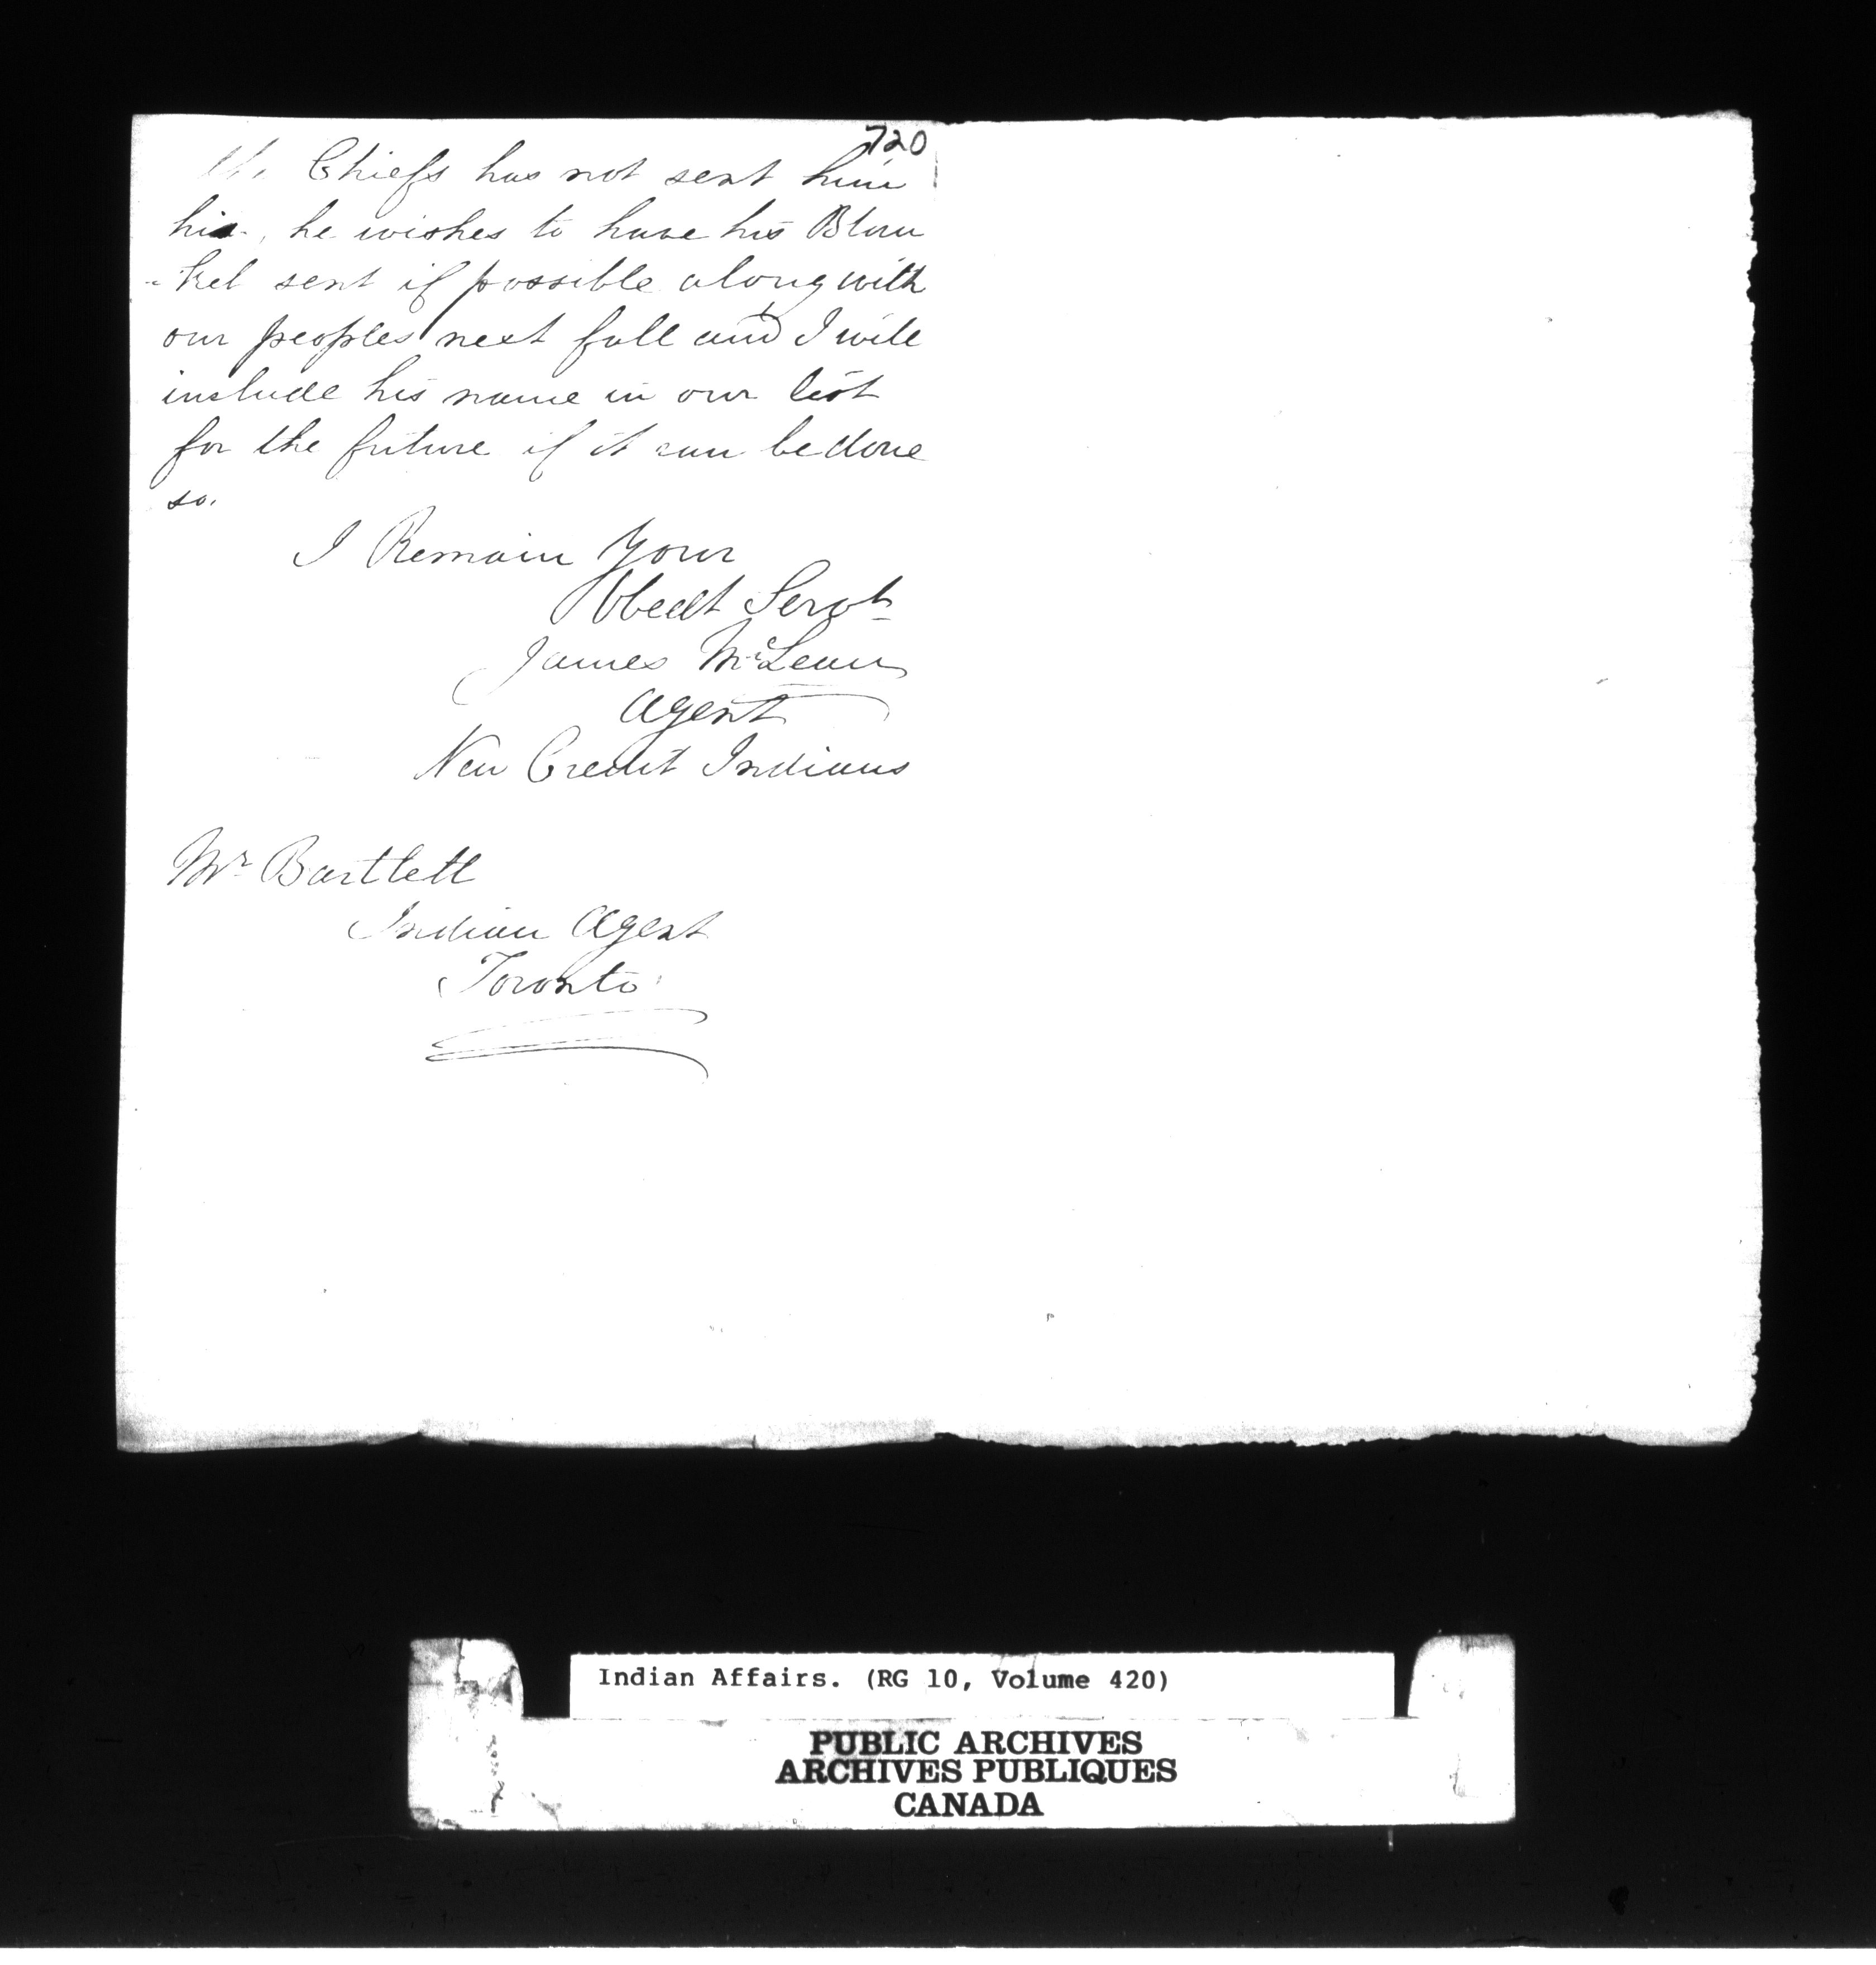 720
the Chiefs has not sent him
his, he wishes to have his Blan
-ket sent if possible along with
our peoples next fall and I will
include his name in our list
for the future if it can be done
so.
I Remain Your
Obedt Servt
James McLean
Agent
New Credit Indians
Mr Bartlett
Indian Agent
Toronto
Indian Affairs. (RG 10, Volume 420)
PUBLIC ARCHIVES
ARCHIVES PUBLIQUES
CANADA